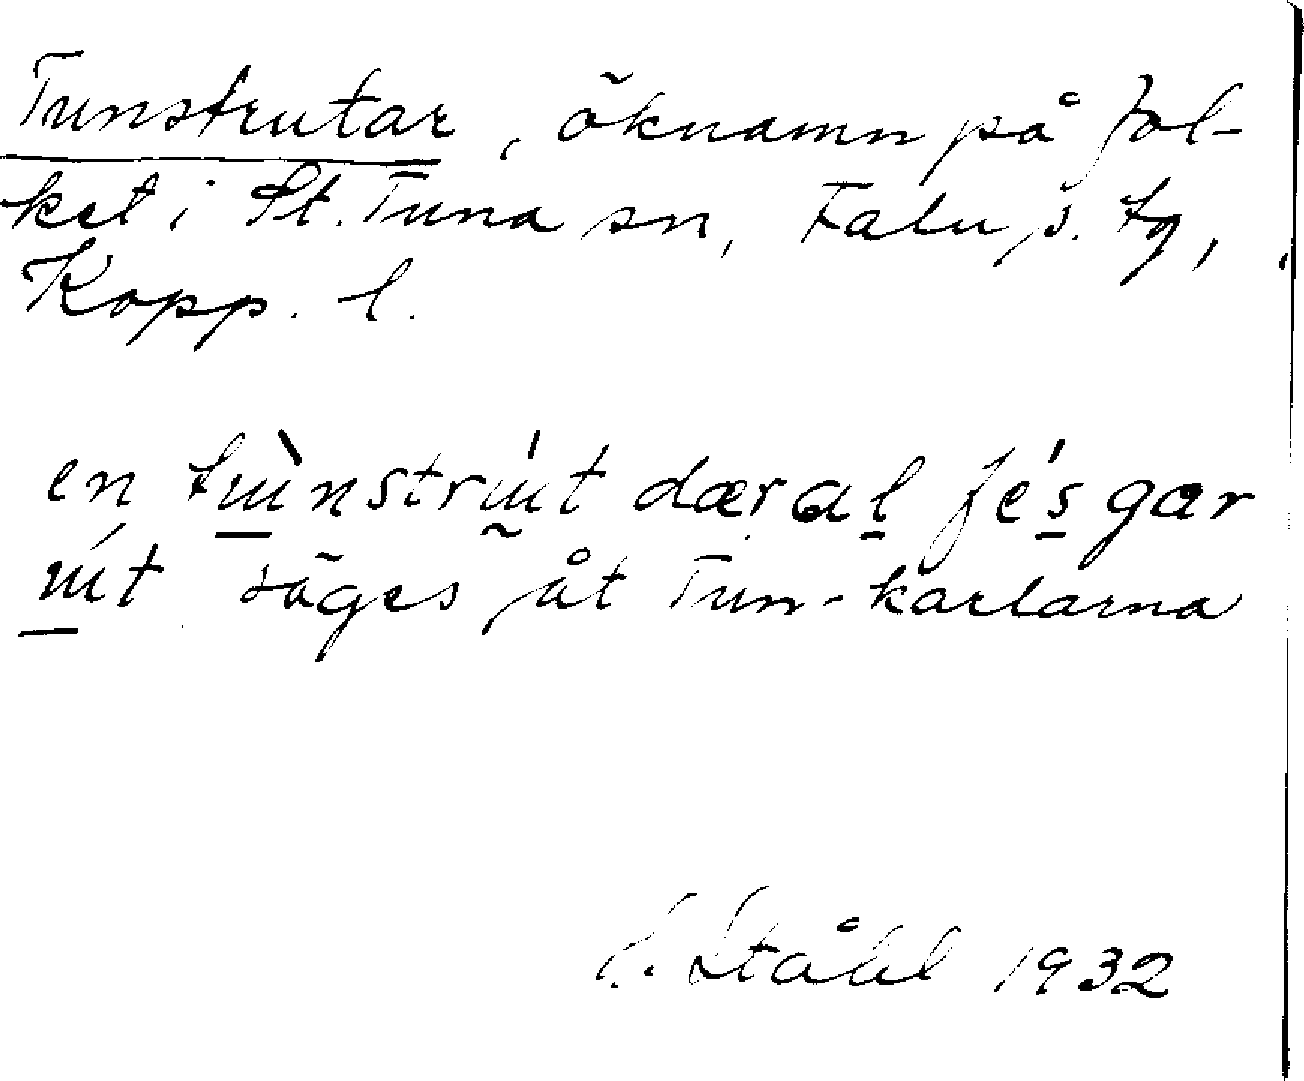 Tunstrutar, öknamn på fol-
ket i St. Tuna sn, Falu s. tg,
Kopp. l.
en tùnstrút dæral fés gar
út säges åt Tun-karlarna
H. Ståhl 1932